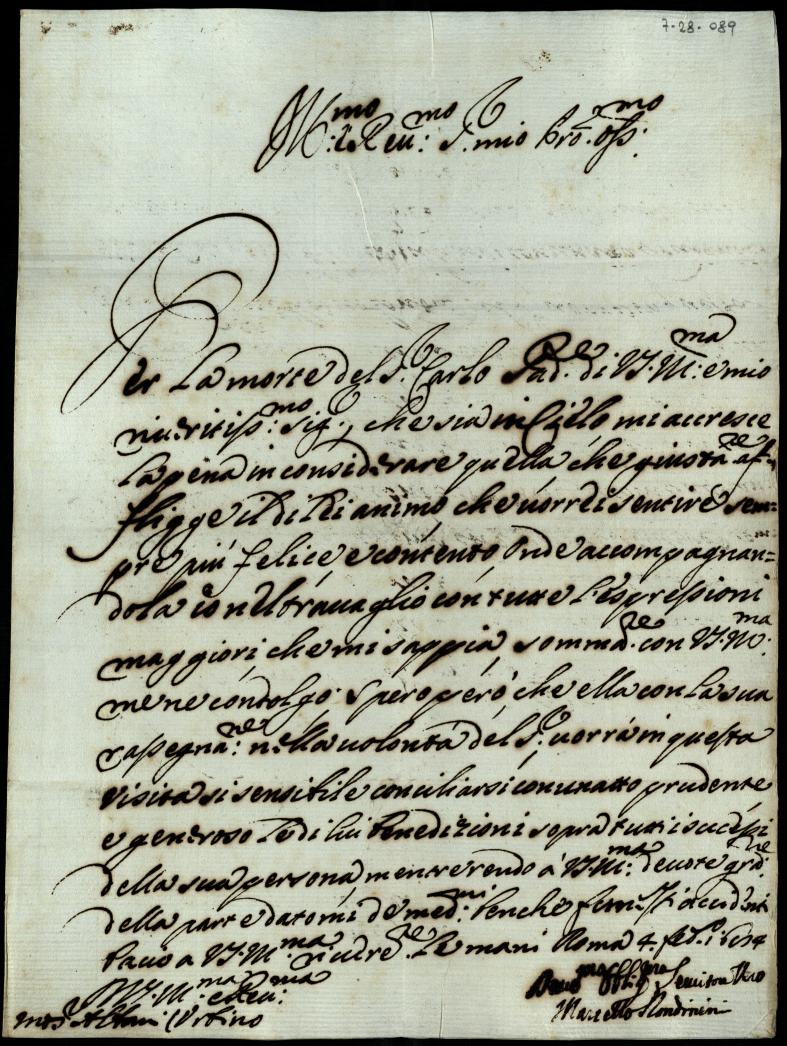 7-28-089
Ill:mo e Reu:mo S.r mio Pro.ne oss:mo
Per La morte del S.r Carlo Pad.e di V.S. Ill:ma e mio
riueritiss:mo sig.r, che sia in Cielo mi accresce
La pena in considerare quella che giusta.te af=
fligge il di Lei animo che uorrei sentire sem=
pre più felice e contento, Onde accompagnan=
dola con el trauaglio con tutte l'espressioni
maggiori, che mi sappia, somma.te con V.S. Ill:ma
me ne condolgo: spero però che ella con La sua
rassegna:ne nella uolontà del S.r uorrà in questa
visita si sensibile conciliarsi con un atto prudente
e generoso Le di lui benedizioni sopra tutti i successi
della sua persona, mentre rendo à V.S. Ill:ma deuote gra:ne
della parte datami de med:mi benche accidenti
bacio a V.S. Ill:ma riuer.te Le mani Roma 4. 1694
V.S. Ill:ma e Reu:ma
Mons.r Albani Urbino
Deuo:mo Obblig:mo Seruitore Vero
Marcello Rondinini